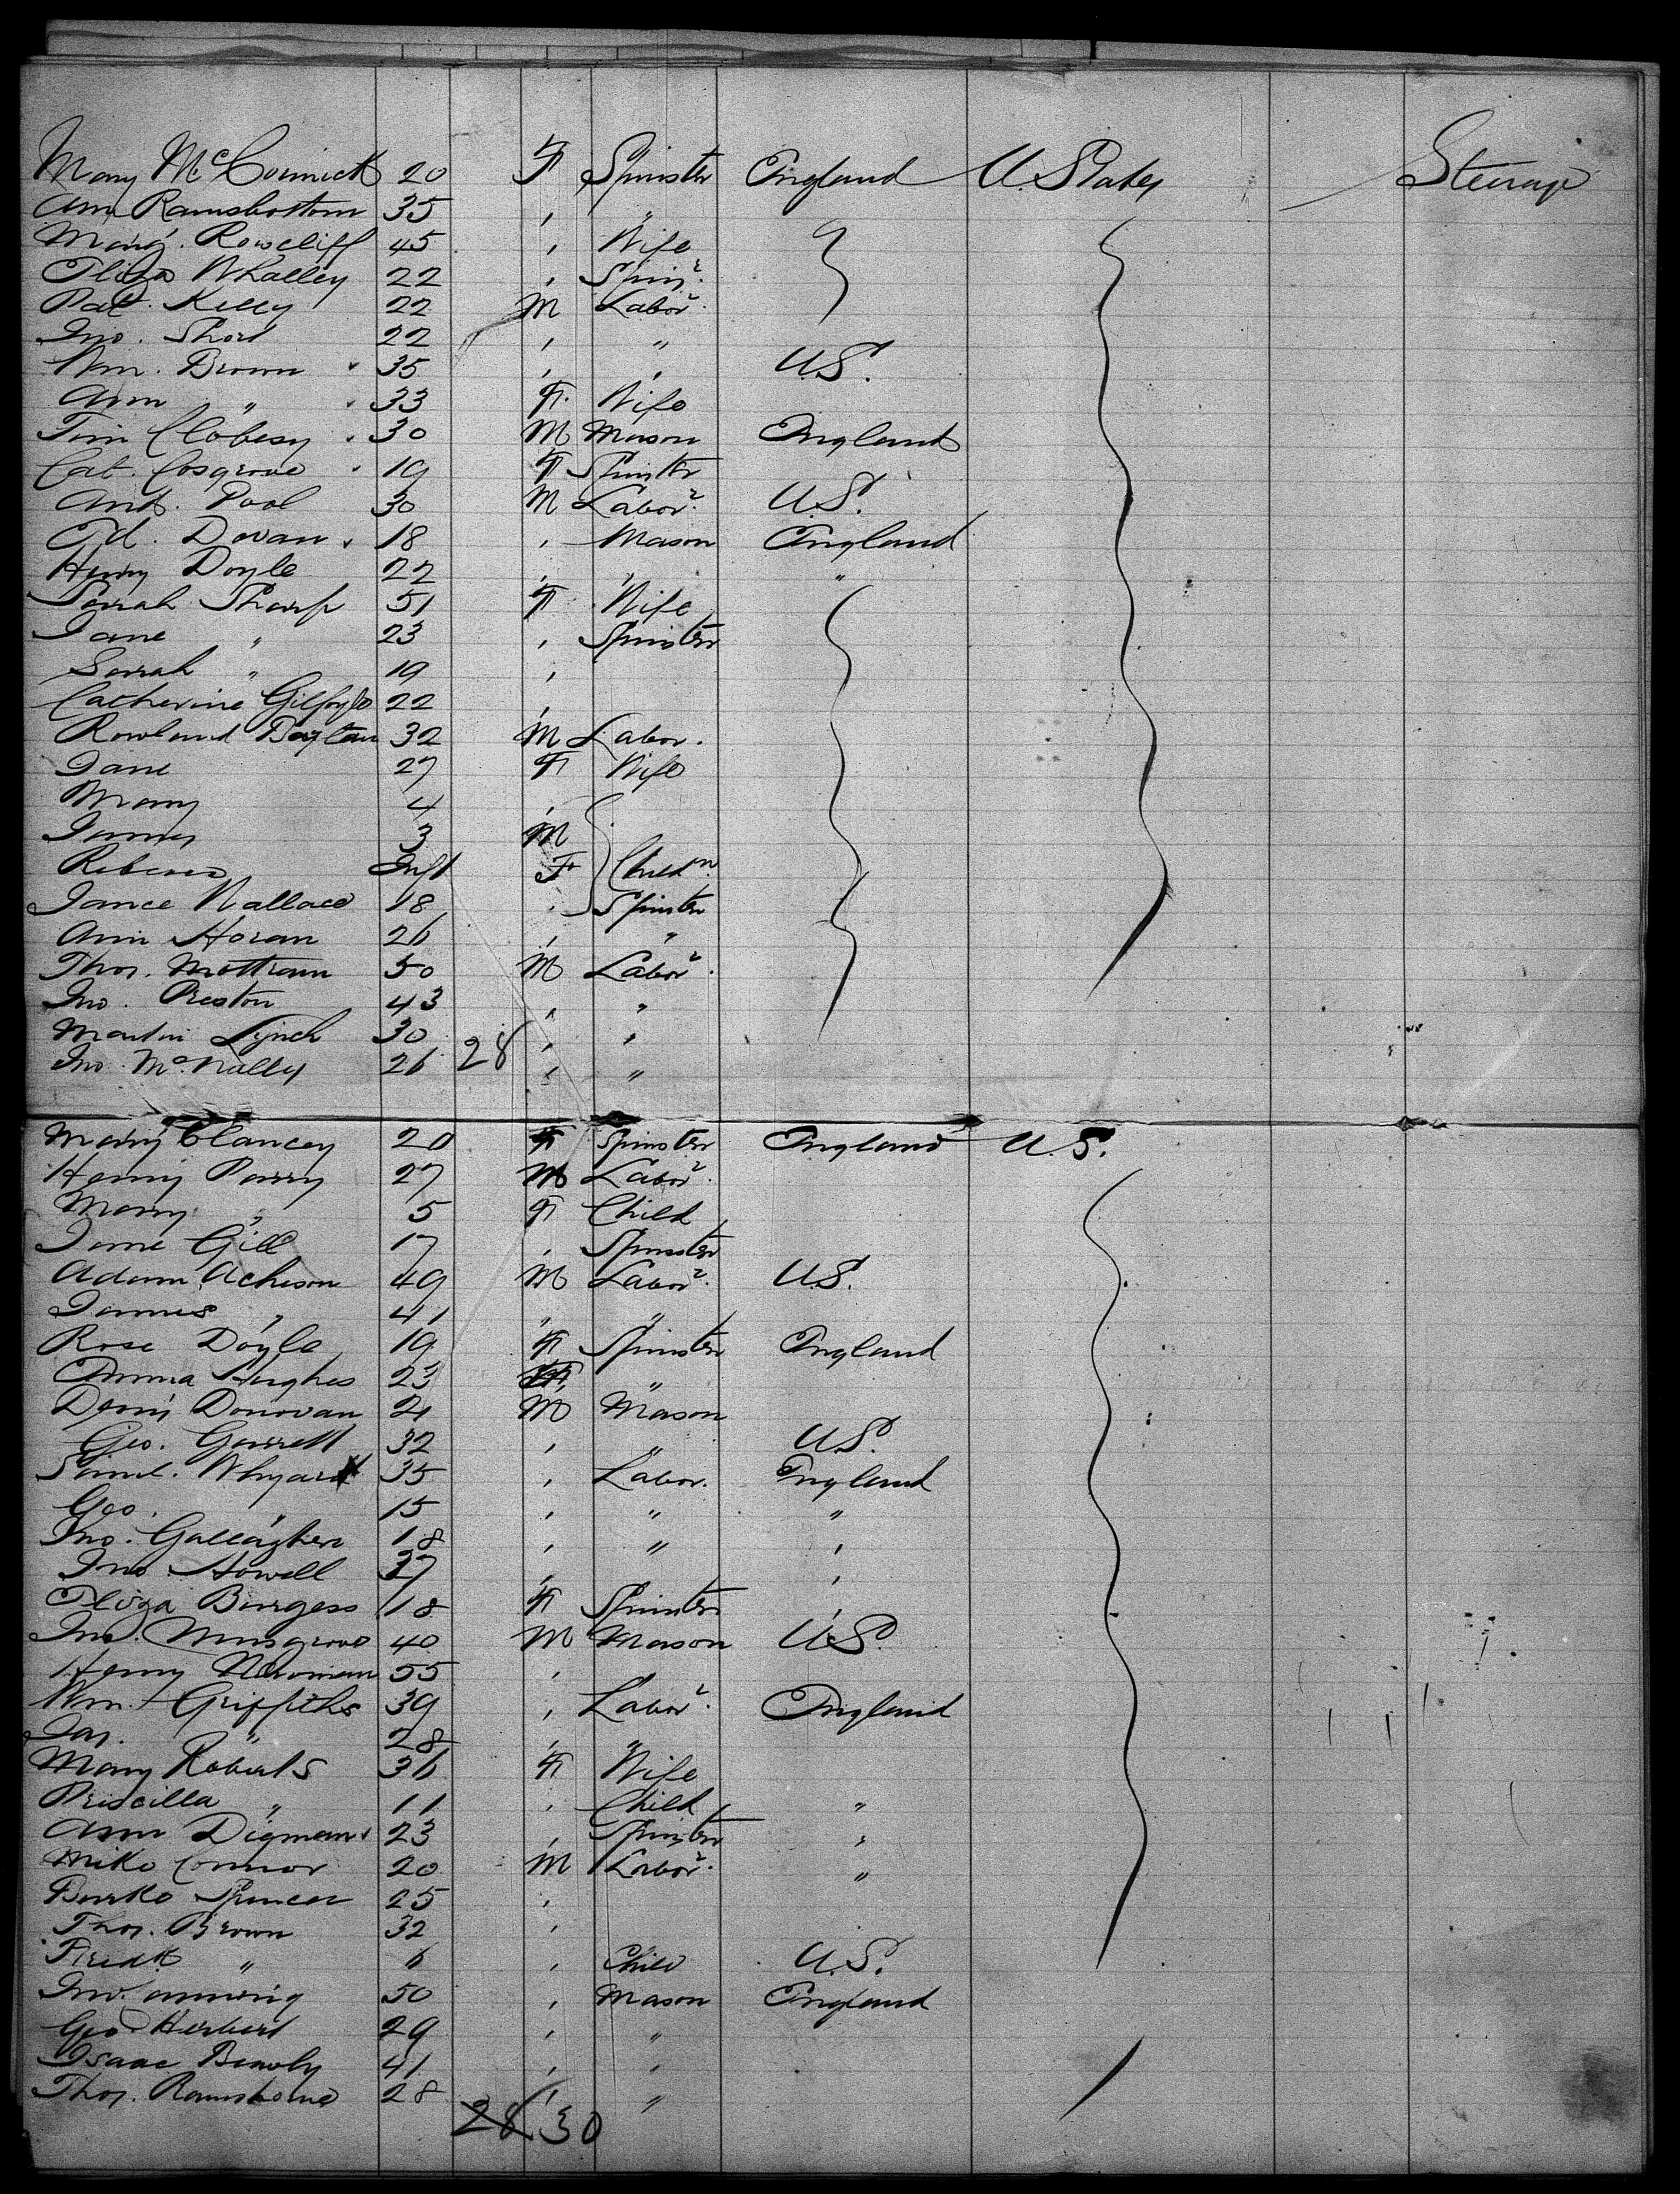 Mary McCormick 20 F Spinster England U. States Steerage
Ann Ramsbottom 35 , "
Marg. Rowcliff 45 , Wife
Eliza Whalley 22 , Spinr.
Pat. Kelly 22 M Labor.
Jno. Short 22 , "
Wm. Brown 35 , , U.S.
Ann " 33 F. Wife
Tim 30 M Mason England
Cat. Cosgrove 19 F Spinster
Ant. Pool 30 M Labor. U.S.
Ed. Dovan 18 , Mason England
Henry Doyle 22 , , "
Sarah Sharp 51 F Wife
Jane " 23 , Spinster
Sarah " 19 ,
Catherine Gilfoyle 22 ,
Rowland 32 M Labor.
Jane 27 F Wife
Mary 4 ,
James 3 M
Rebecca Inft F Childn.
Janee Wallace 18 , Spinster
Ann Horan 26 , "
Thos. Mottram 50 M Labor.
Jno. Preston 43 , "
Martin Lynch 30 , ,
Jno. McNally 26 28 , "
Mary Clancey 20 F Spinster England U.S.
Henry Parry 27 M Labor.
Mary " 5 F Child
Jane Gill 17 , Spinster
Adam Acheson 49 M Labor. U.S.
James " 41 " "
Rose Doyle 19 F Spinster England
Emma Hughes 23 F "
Denis Donovan 21 M Mason
Geo. Garrett 32 , " U.S.
Saml. 35 , Labor. England
Geo. " 15 , " "
Jno. Gallagher 18 , " ,
Jno. Howell 37 , ,
Eliza Burgess 18 F Spinster ,
Jno. Musgrove 40 M Mason U.S.
Henry Newman 55 ,
Wm. Griffiths 39 , Labor. England
Jas. " 28 , "
Mary Roberts 36 F Wife
Priscilla " 11 , Child "
Ann Digman 23 , Spinster "
Mike Connor 20 M Labor. "
Burke Spencer 25 ,
Thos. Brown 32 ,
Fredk " 6 , Child U.S.
Jno. 50 , Mason England
Geo. Herbert 29 , "
Isaac 41 , ,
Thos. 28 , "
28 30